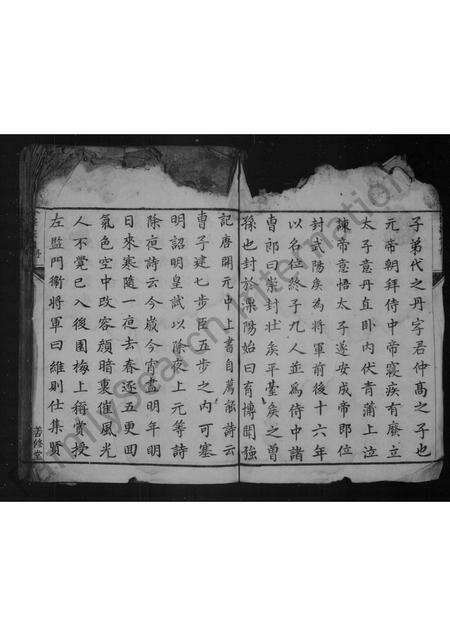 子弟代之丹字君仲高之子也
元帝朝拜侍中帝寢疾有廢立
太子意丹直卧内伏青蒲上泣
諫帝意悟太子遂安成帝即位
封武陽矦為將軍前後十六年
以名位終子九人並為侍中諸
曹郎曰崇封壮矦平臺矦之曽
孫也封於溧陽始曰育博聞強
記唐開元中上書自薦能詩云
曹子建七步臣五步之内可塞
明詔明皇試以除夜上元等詩
除夜詩云今歲今宵盡明年明
日來寒隨一夜去春逐五更回
氣色空中改容顔暗裏催風光
人不覺已入後園梅上稱賞授
左監門衛將軍曰維則仕集賢
若修堂
FamilySearch International